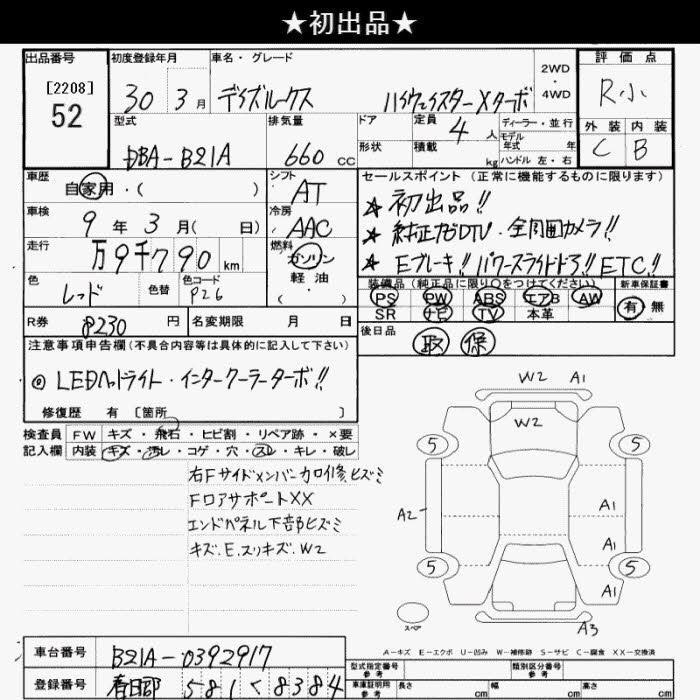 ★初出品★
出品番号 初度登録年月 車名・グレード 2WD・4WD 評価点
[2208] 52 30 3月 デイズルークス ハイウェイスターXターボ R小
型式 排気量 ドア 定員 4人 ディーラー・並行 外装 内装
DBA-B21A 660cc 形状 積載 kg モデル年式 年 ハンドル 左・右 C B
車歴 自家用・( ) シフト AT セールスポイント (正常に機能するものに限ります)
車検 9年3月( 日) 冷房 AAC ★初出品!!
走行 万9千790km 燃料 ガソリン 軽油 ( ) ★純正ナビDTV・全周囲カメラ!!
★Eブレーキ!!パワースライドドア!!ETC!!
色 レッド 色替 色コード P26 装備品(純正品に限り○をつけてください) 新車保証書
PS PW ABS エアB AW 有 無
R券 8230円 名変期限 月 日 SR ナビ TV 本革
後日品 取 保
注意事項申告欄(不具合内容等は具体的に記入して下さい)
◎LEDヘッドライト・インタークーラーターボ!!
修復歴 有 [箇所 ]
検査員 FW キズ・飛石・ヒビ割・リペア跡・×要
記入欄 内装 キズ・汚レ・コゲ・穴・スレ・キレ・破レ
右Fサイドメンバー加修.ヒズミ
FロアサポートXX
エンドパネル下部ヒズミ
キズ.E.スリキズ.W2
W2 A1
W2
5 5
A2 A1
A1
5 A1 5
スペア A3
A-キズ E-エクボ U-凹み W-補修跡 S-サビ C-腐食 XX-交換済
車台番号 B21A-0392917 型式指定番号 参考 類別区分番号 参考
登録番号 春日部 581 く 8384 車庫証明用 参考 長さ cm 幅 cm 高さ cm